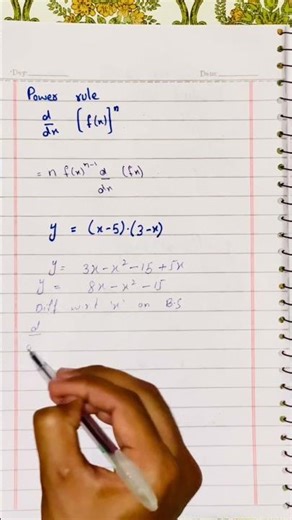 Dep
Date
Power rule
d/dx [f(x)]^n
= n f(x)^n-1 d/dx (fx)
y = (x-5)·(3-x)
y = 3x-x²-15+5x
y = 8x-x²-15
Diff w.r.t 'x' on B.S
d